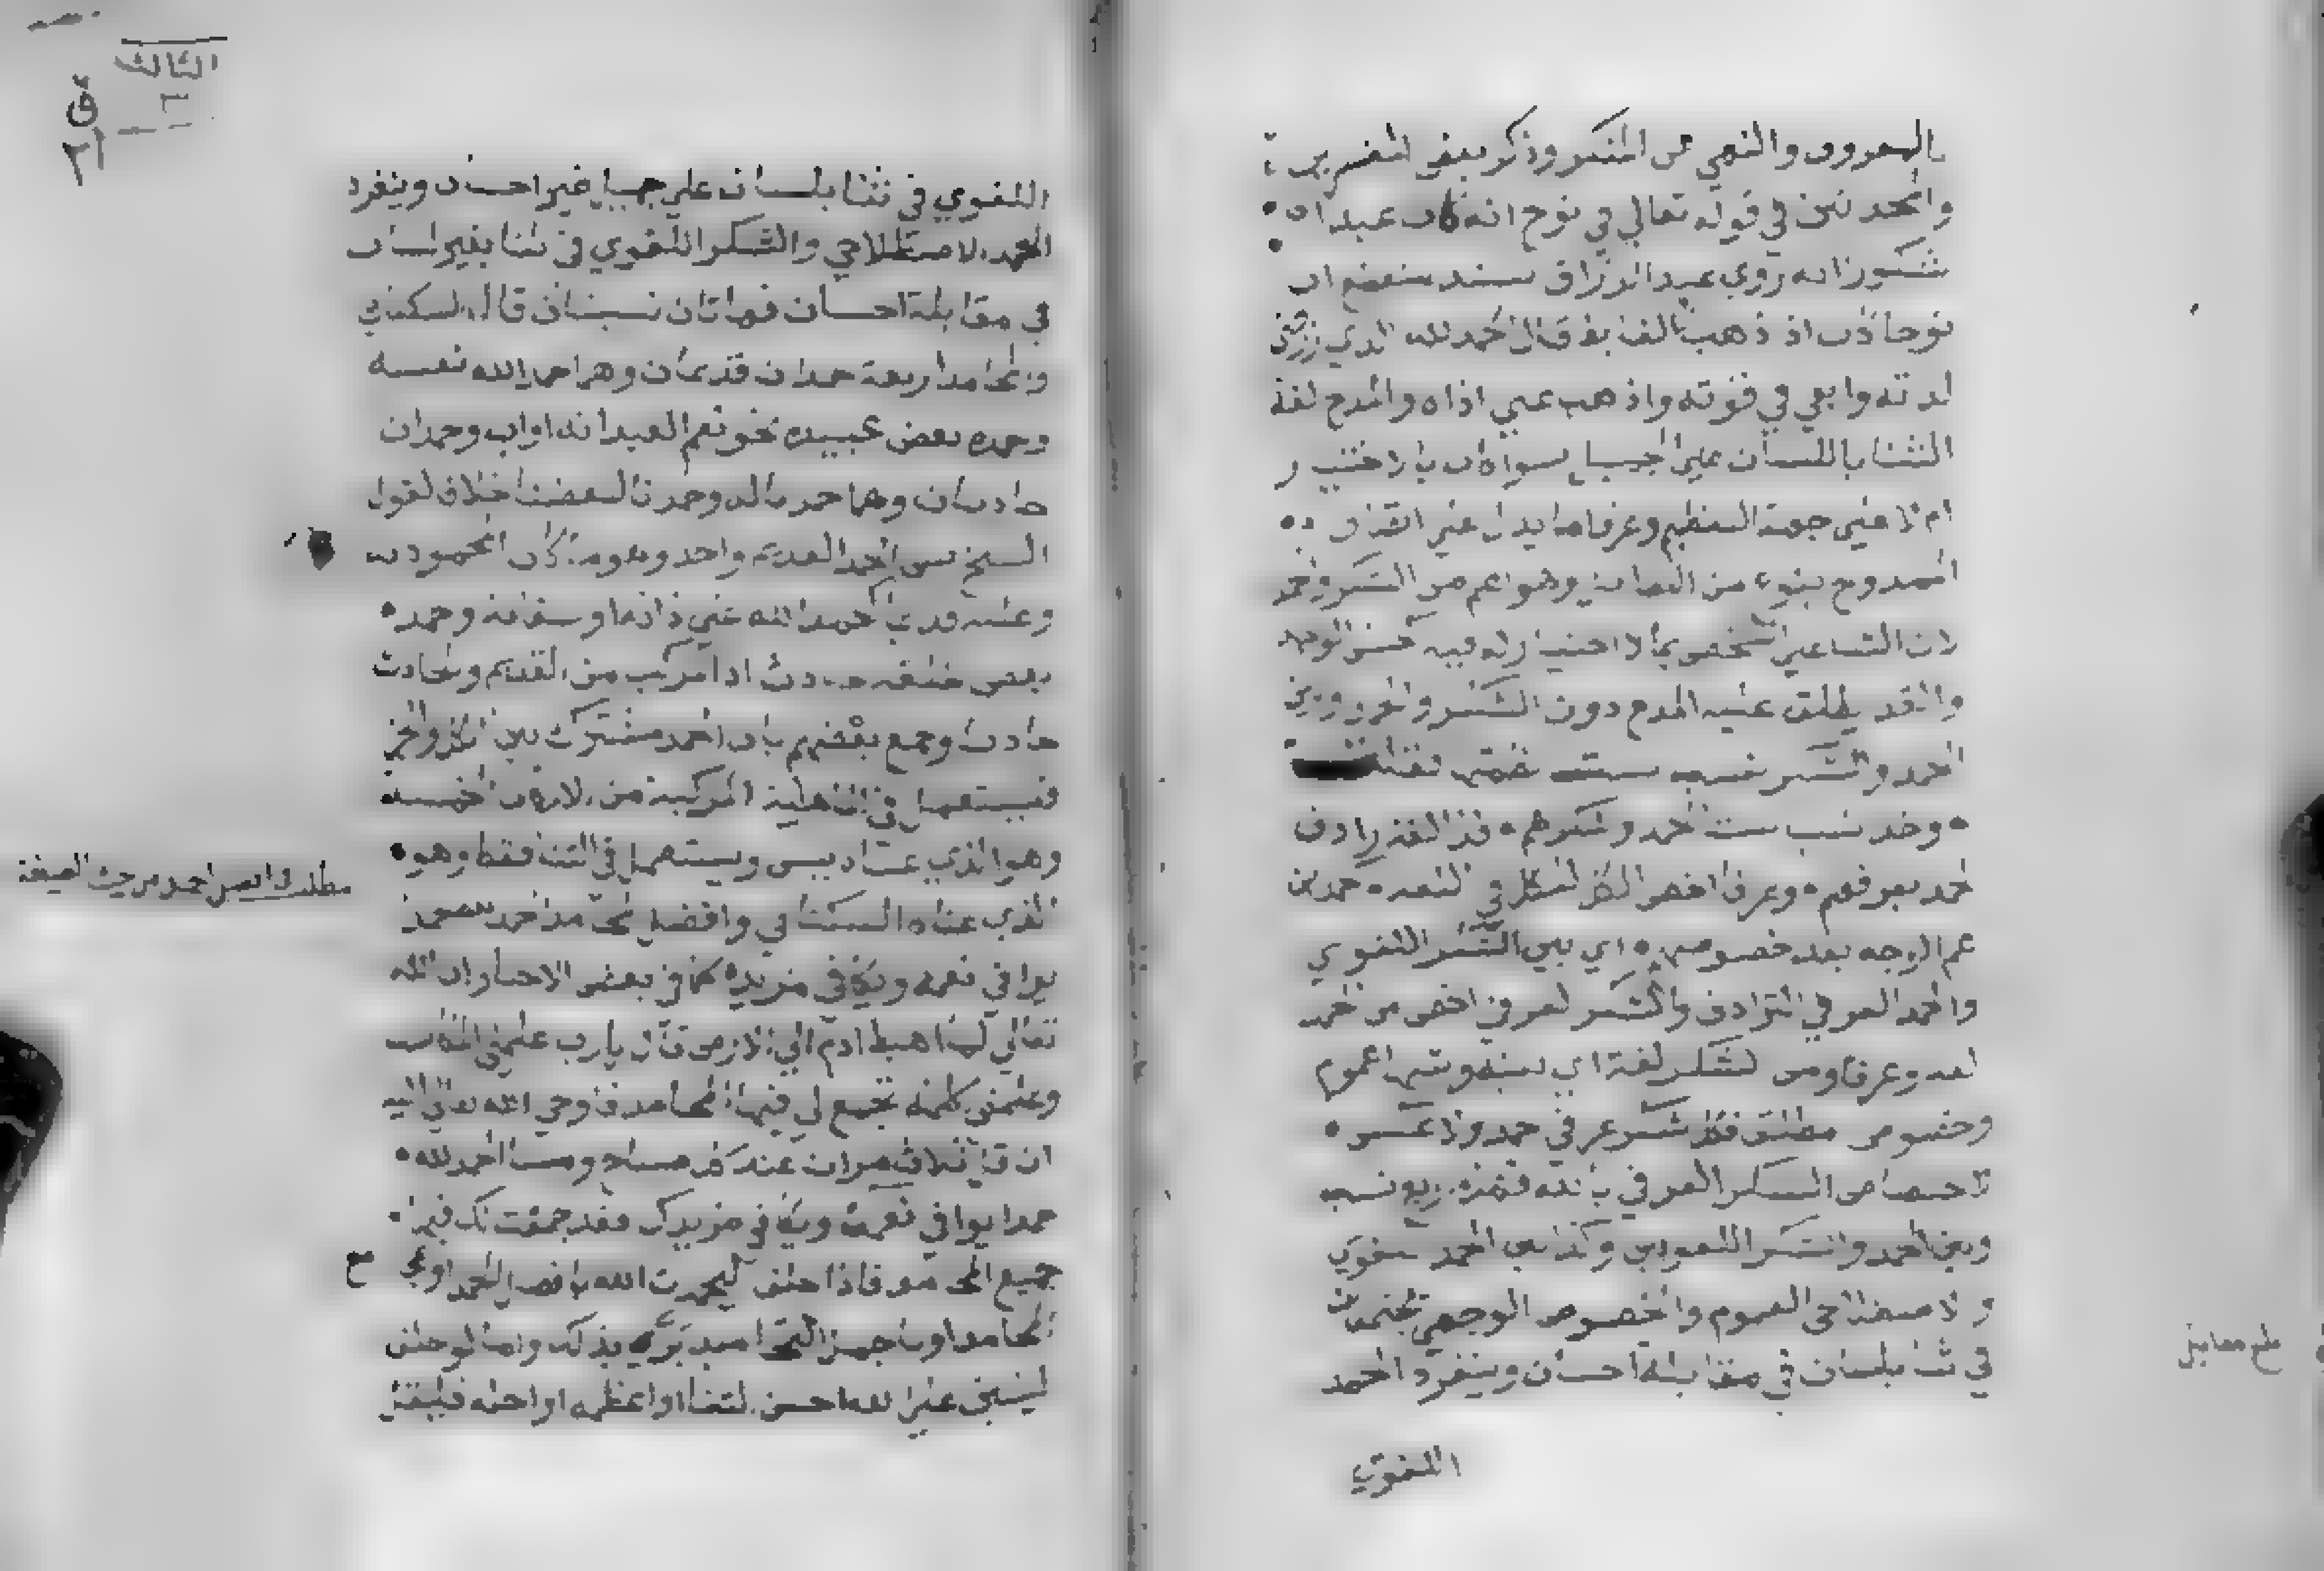 بالمعروف والنهي عن المنكر وذكر بعض المفسرين
والمحدثين في قوله تعالي في نوح انه كان عبدا
شكورا انه روي عبد الرزاق بسند منقطع ان
نوحا كان اذا ذهب الغائط قال الحمد لله الذي رزقني
لذته وابقي في قوته واذهب عني اذاه والمدح لغة
الثنا باللسان علي الجميل سوا كان باختيار
ام لا علي جهة التعظيم وعرفا ما يدل علي اتصاف
الممدوح بنوع من وهو اعم من الشكر والحمد
لان الثنا علي الشخص بما لا اختيار له فيه كحسن الوجه
والقد يطلق عليه المدح دون الشكر والحمد وبين
الحمد والشكر نسب ست نظمتها فقلت
وخذ نسب ست لحمد وشكرهم فذا لغة رادف
لحمد بعرفهم وعرفا اخص الكل الشكل في
عم الوجه بعد خصوصهم اي بين الشكر اللغوي
والحمد العرفي الترادف والشكر العرفي اخص من الحمد
لغة وعرفا ومن الشكر لغة اي بينه وبينها عموم
وخصوص مطلق فكل شكر عرفي حمد ولا عكس
لاختصاص الشكر العرفي بالله فهذه نسب
وبين الحمد والشكر اللغويين وكذا بين الحمد اللغوي
والاصطلاحي العموم والخصوص الوجهي يجتمعان
في ثنا بلسان في مقابلة احسان وينفرد الحمد
اللغوي
الثالث
٣
ق
٢١
اللغوي في ثنا بلسان علي جميل غير احسان وينفرد
الحمد الاصطلاحي والشكر اللغوي في ثنا بغير لسان
في مقابلة احسان فهاتان نسبتان قال السكتاني
والمحامد اربعة حمدان قديمان وهما حمد الله نفسه
وحمده بعض عبيده نحو نعم العبد انه اواب وحمدان
حادثان وهما حمدنا له وحمدنا لبعضنا خلافا لقول
الشيخ يس الحمد القديم واحد وهو ما كان المحمود به
وعليه قديما كحمد الله علي ذاته وصفاته وحمده
بعض خلقه حادث اذ المركب من القديم والحادث
حادث وجمع بعضهم بان الحمد مشترك بين الكل والجزء
فيستعمل في الماهية المركبة من الاركان الخمسة
وهو الذي عناه يس ويستعمل في الثنا فقط وهو
الذي عناه السكتاني وافضل المحامد الحمد لله حمدا
يوافي نعمه ويكافي مزيده كما في بعض الاخبار ان الله
تعالي لما اهبط ادم الي الارض قال يارب علمني المكاسب
وعلمني كلمة تجمع لي فيها المحامد فاوحي الله تعالي اليه
ان قل ثلاث مرات عند كل صباح ومسا الحمد لله
حمدا يوافي نعمك ويكافي مزيدك فقد جمعت لك فيها
جميع المحامد فاذا حلف ليحمدن الله بافضل الحمد او
المحامد او باجمل التحاميد بذلك واما لو حلف
ليثنين علي الله احسن الثنا او اعظمه او اجله فليقل
مطلب في افضل الحمد من حيث الصيغة